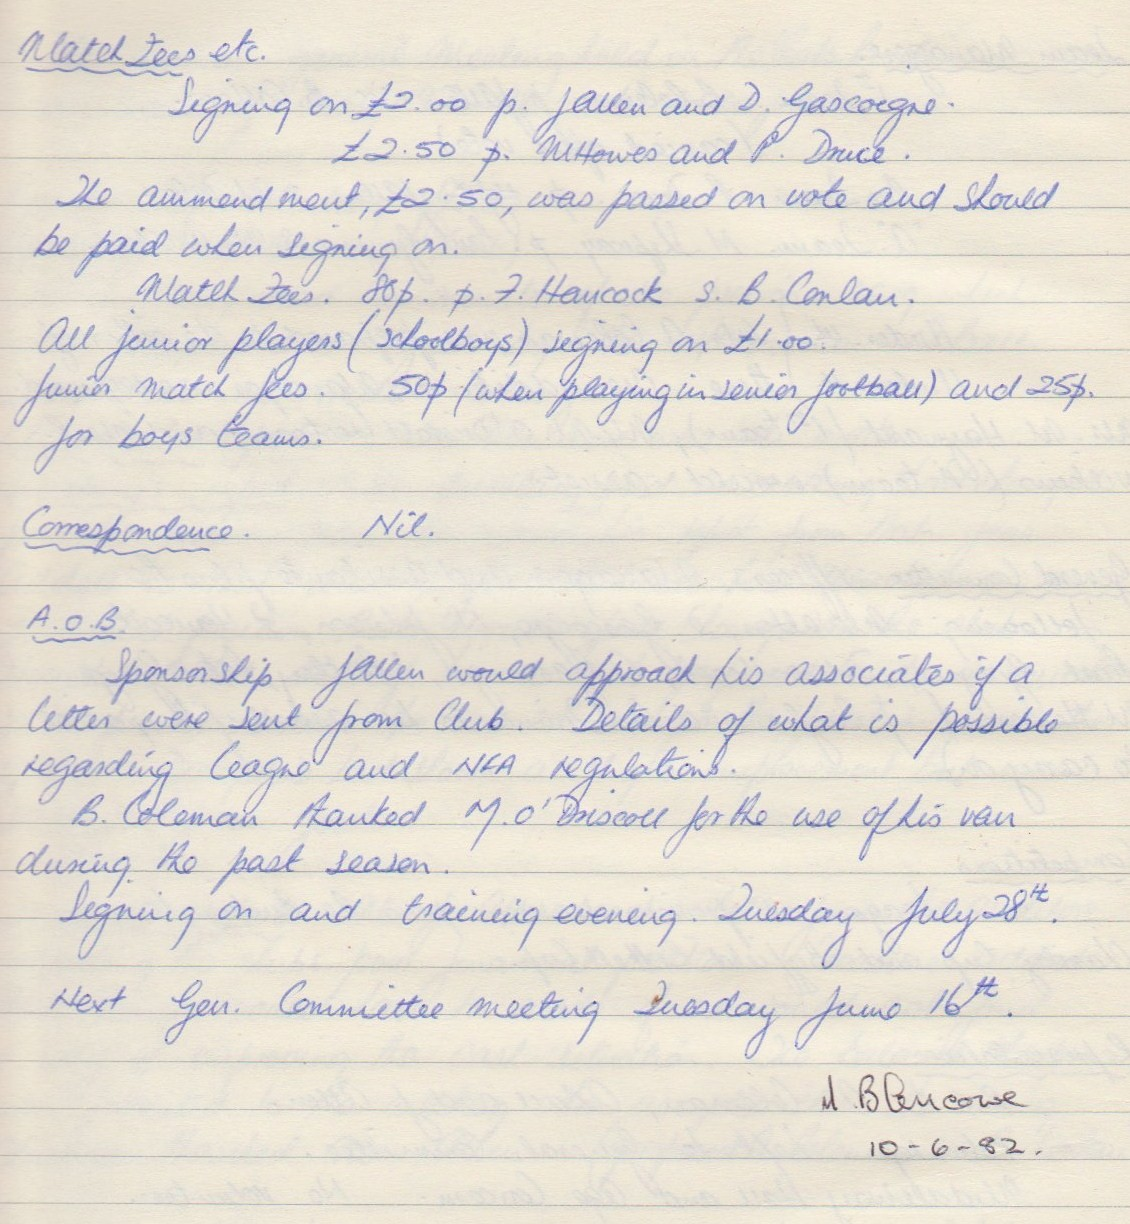 Match Fees etc.
Signing on £2.00 p. J Allen and D. Gascoegne.
£2.50 p. M Howes and P. Druce.
The ammendment, £2.50, was passed on vote and should
be paid when signing on.
Match Fees. 80p. p. F. Hancock s. B. Conlan.
All junior players (schoolboys) signing on £1.00.
Junior match fees. 50p (when playing in senior football) and 25p.
for boys teams.
Correspondence. Nil.
A.O.B.
Sponsorship J Allen would approach his associates if a
letter were sent from Club. Details of what is possible
regarding league and NFA regulations.
B. Coleman thanked M. O'Driscoll for the use of his van
during the past season.
Signing on and training evening. Tuesday July 28th.
Next Gen. Committee meeting Tuesday June 16th.
M. Blencowe
10-6-82.